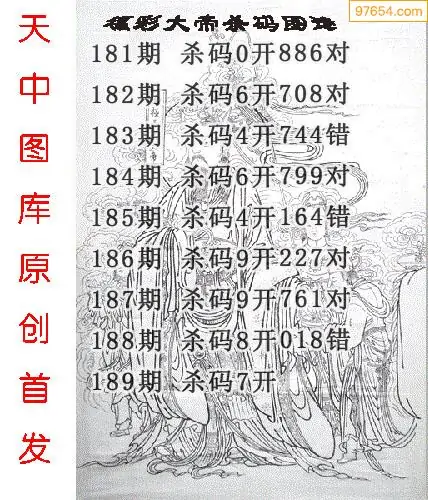 97654.com
福彩大帝杀码图
181期 杀码0开886对
182期 杀码6开708对
183期 杀码4开744错
184期 杀码6开799对
185期 杀码4开164错
186期 杀码9开227对
187期 杀码9开761对
188期 杀码8开018错
189期 杀码7开
天中图库原创首发